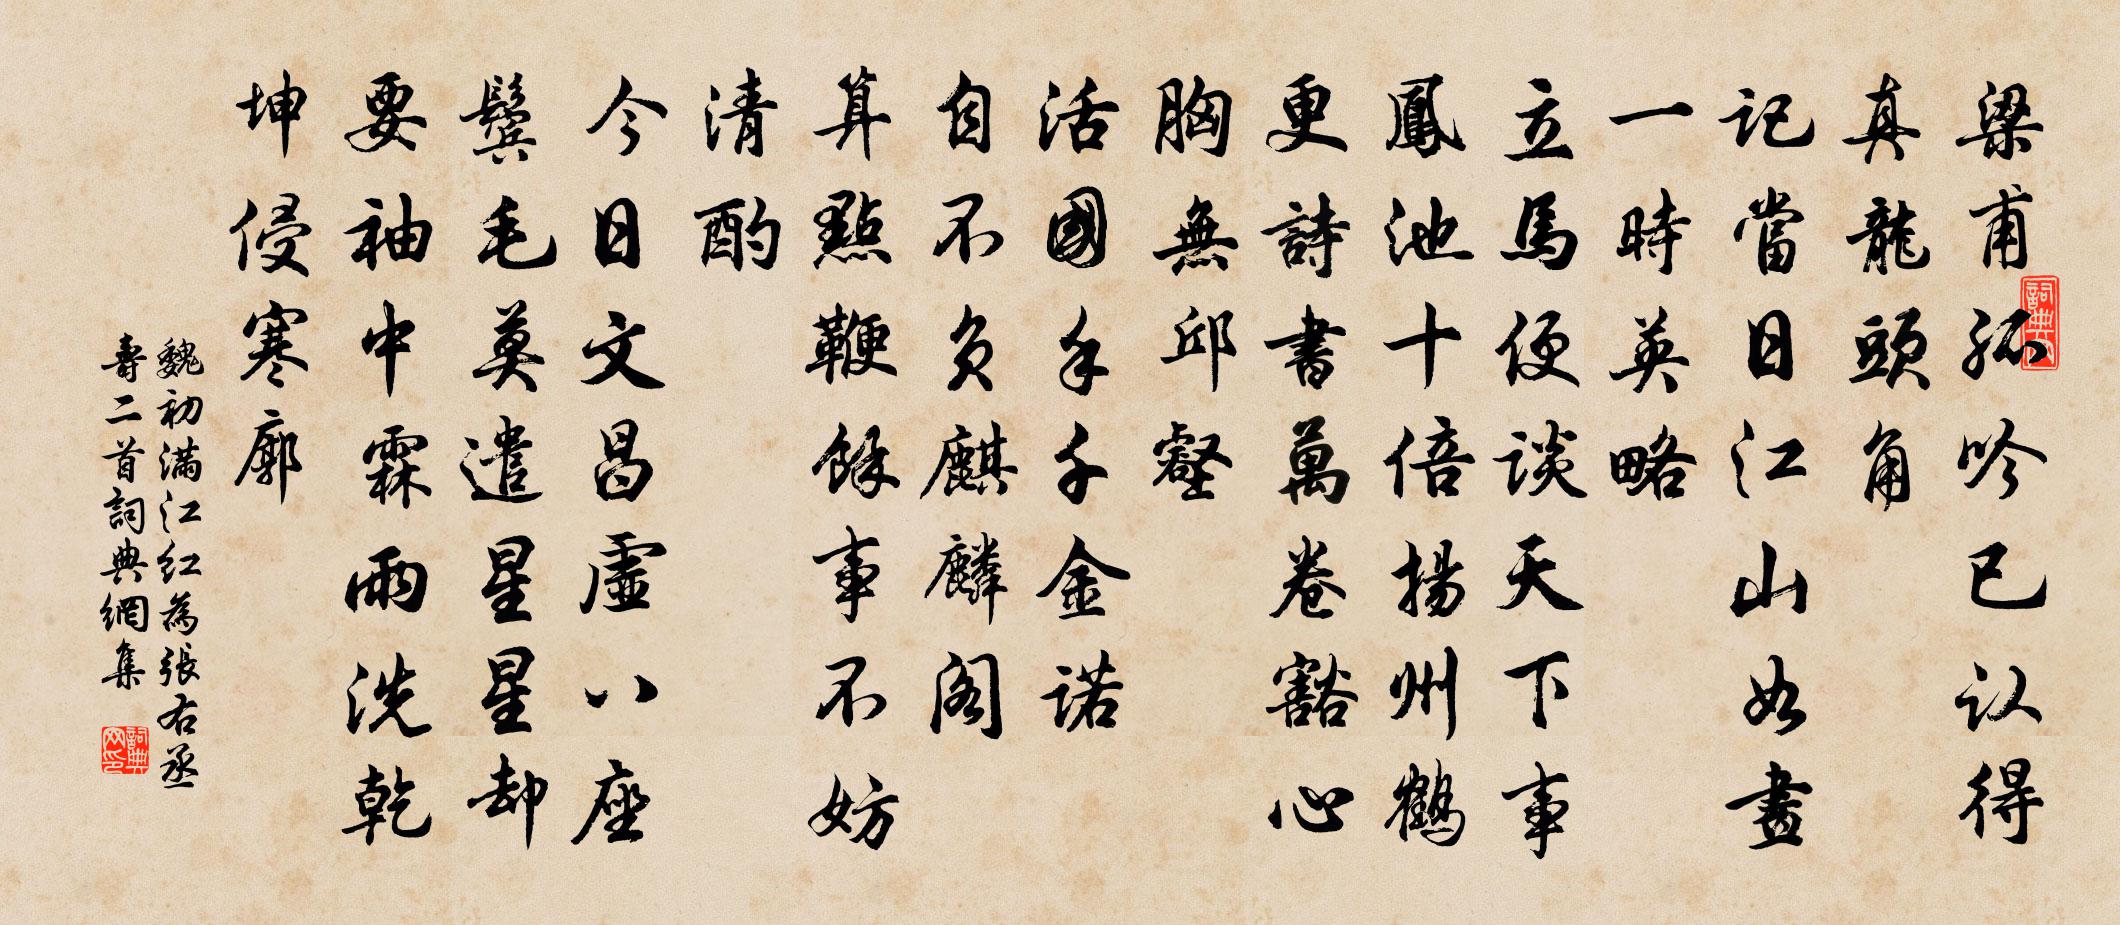 梁甫孤吟已认得
真龍頭角
记當日江山如畫
一時英略
立馬便談天下事
鳳池十倍揚州鶴
更詩書萬卷豁心
胸無邱壑
活國手千金諾
自不負麒麟閣
算點鞭餘事不妨
清酌
今日文昌虛八座
鬢毛莫遣星星却
要袖中霖雨洗乾
坤侵寒廓
魏初满江红為張右丞
壽二首詞典網集
詞典网印